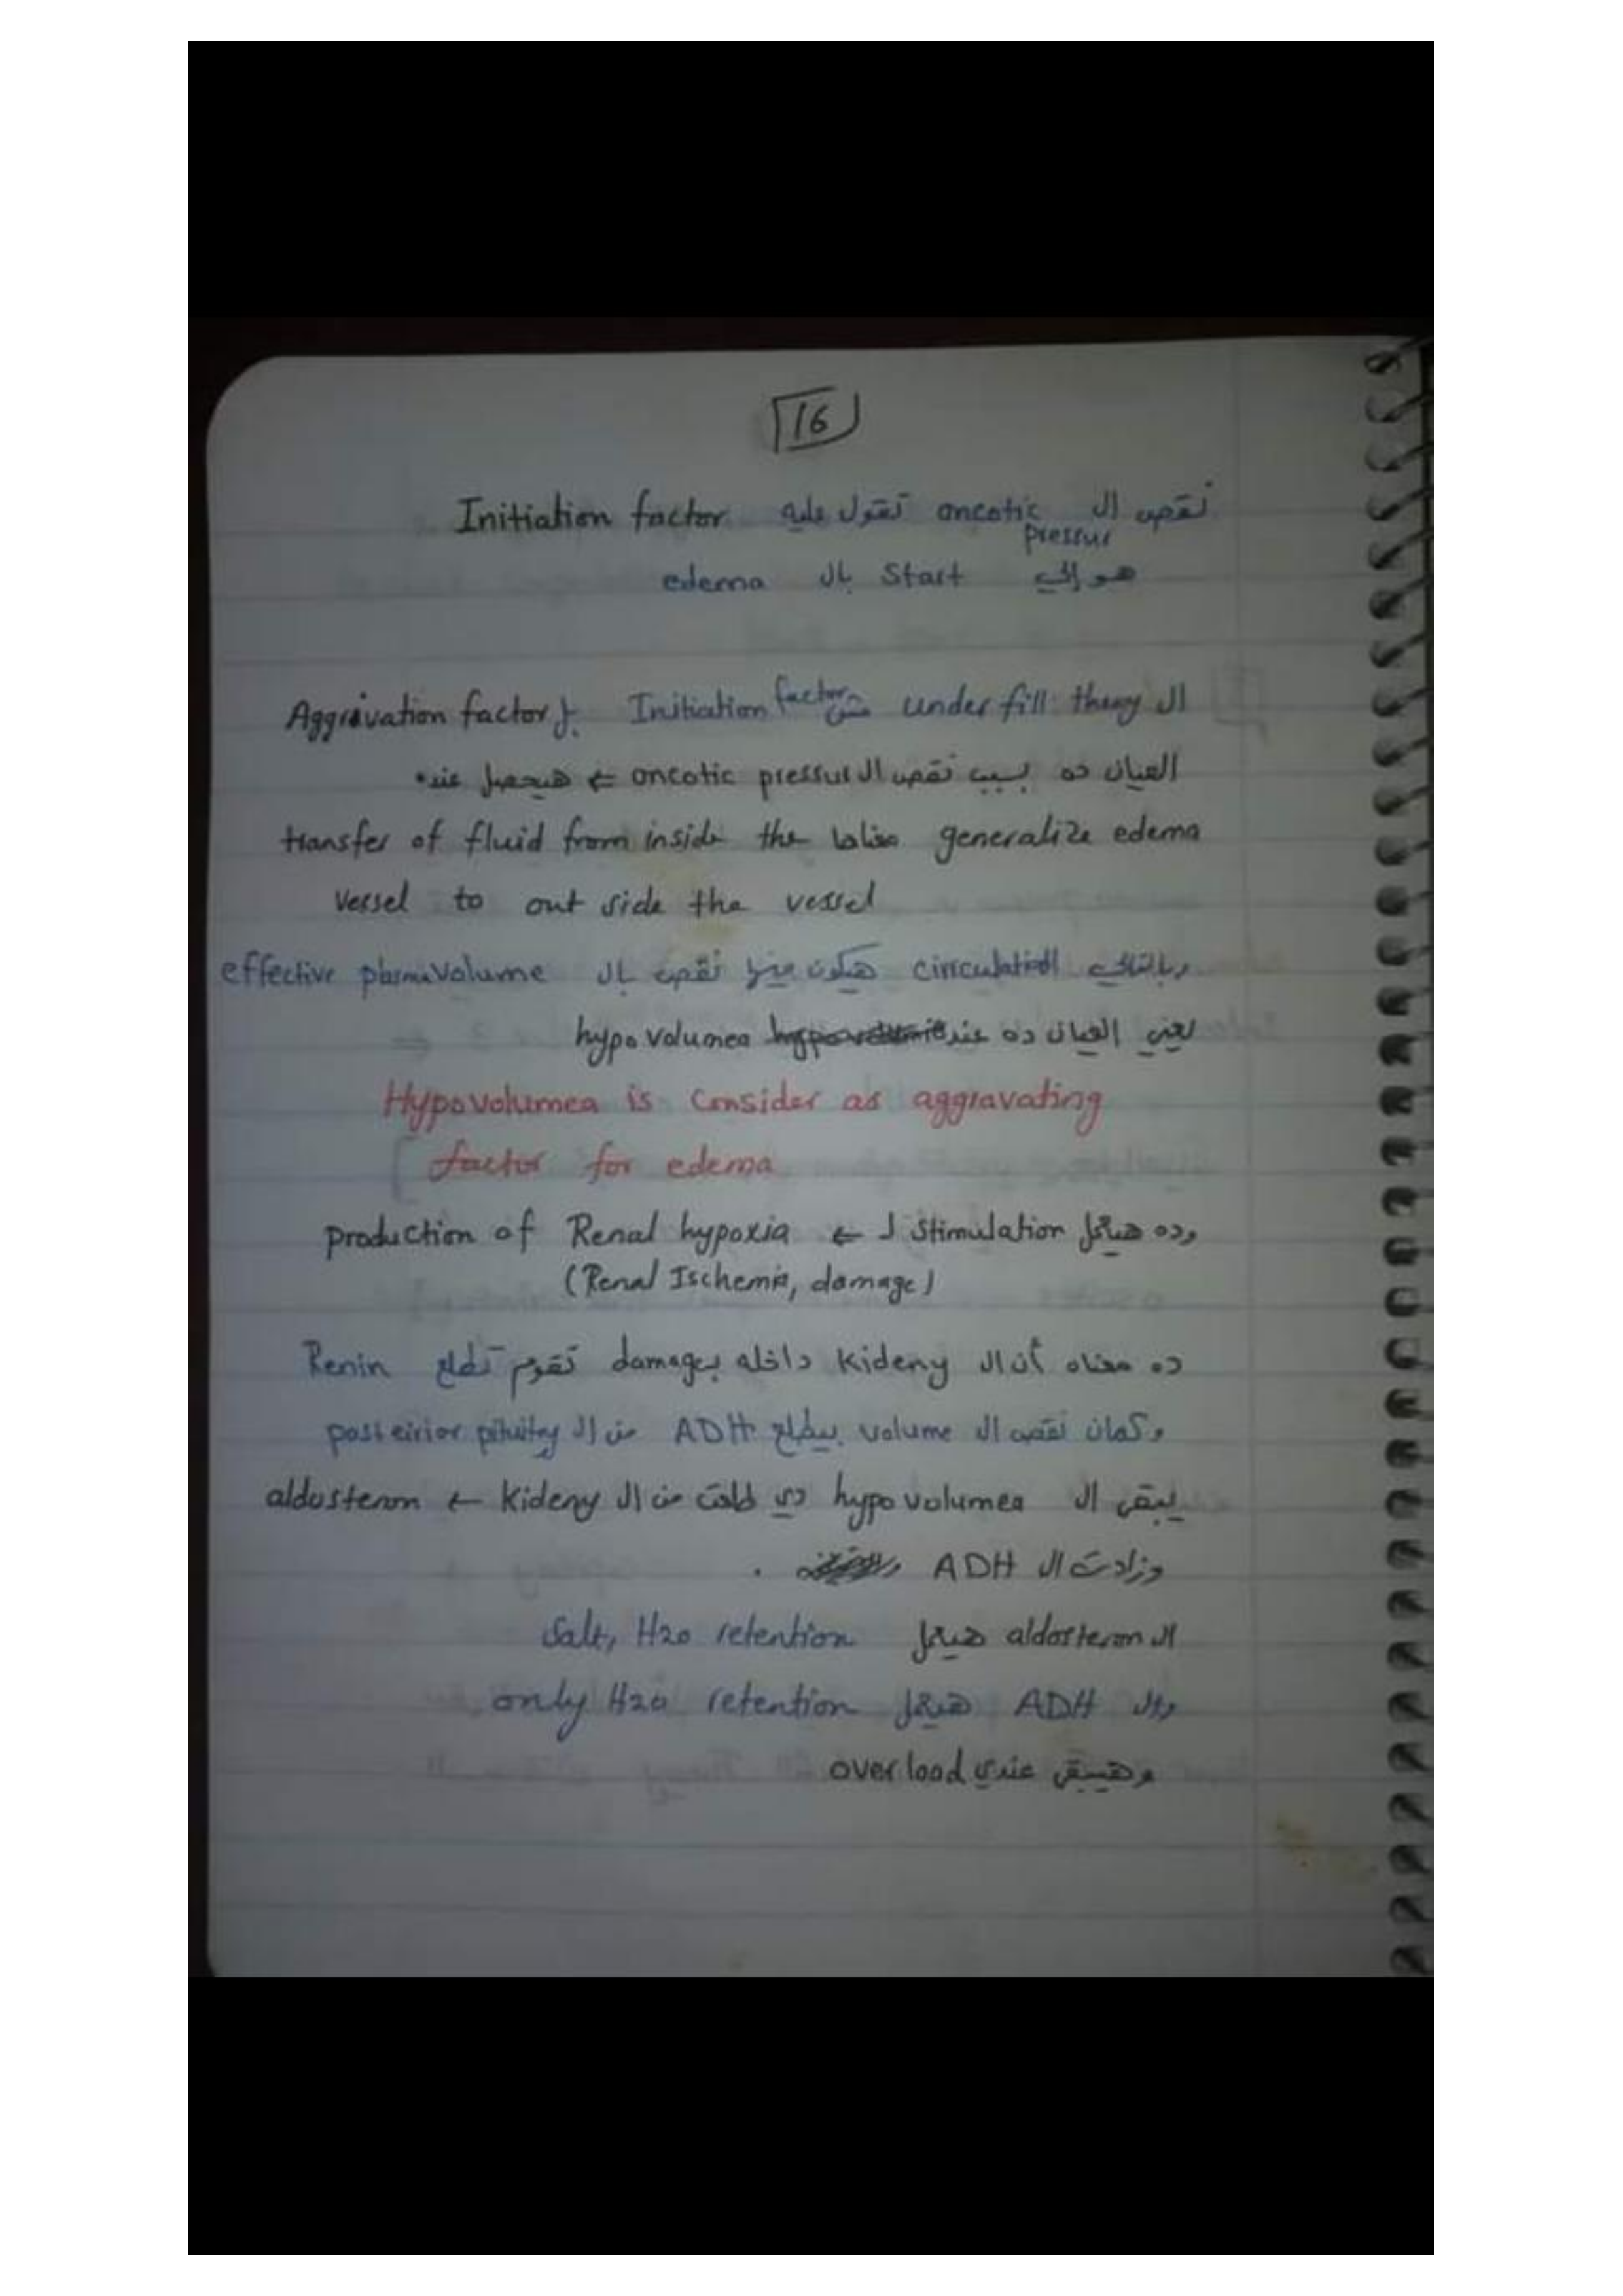 16
نقص ال oncotic pressur تقول عليه Initiation factor
هو إلي Start بال edema
ال under fill theory مش Initiation factor Aggrivation factor
العيان ده بسبب نقص ال oncotic pressur ← هيحصل عنده
generalize edema معناها transfer of fluid from inside the
vessel to out side the vessel
وبالتالي circulation هيكون فيها نقص بال effective plasma volume
يعني العيان ده عند hypo volumea
Hypovolumea is consider as aggravating
factor for edema
وده هيعمل stimulation ل ← production of Renal hypoxia
(Renal Ischemia, damage)
ده معناه أن ال Kideny داخله بـ damage تقوم تطلع Renin
وكمان نقص ال volume بيطلع ADH من ال posteirior pituitry
يبقى ال hypo volumea دي طلعت من ال Kideny ← aldosteron
وزادت ال ADH
ال aldosteron هيعمل Salt, H2o retention
وال ADH هيعمل only H2o retention
وهيبقى عندي over load